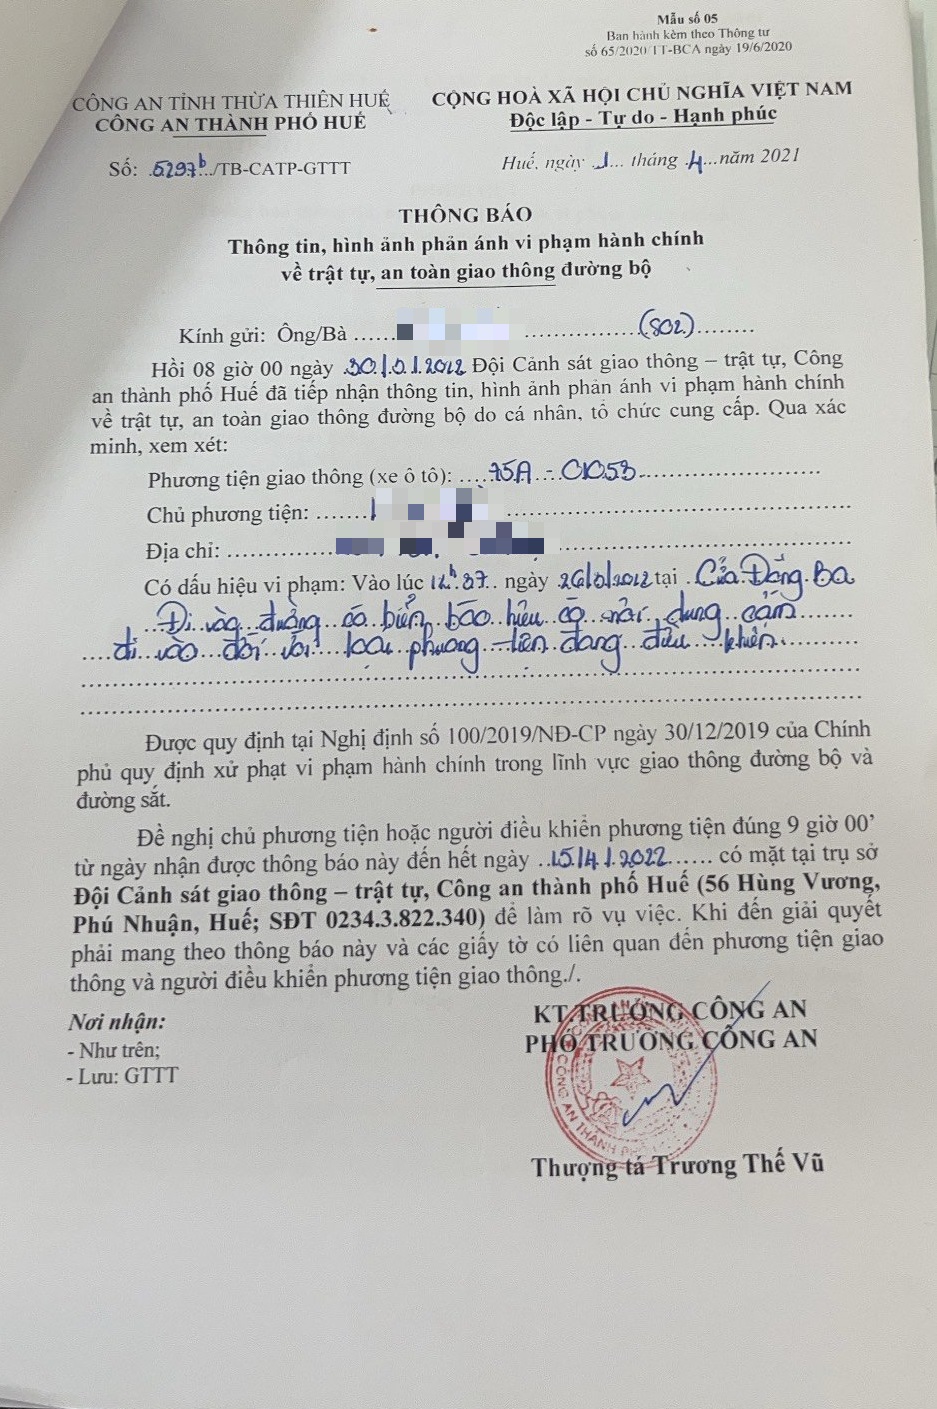 Mẫu số 05
Ban hành kèm theo Thông tư
số 65/2020/TT-BCA ngày 19/6/2020
CÔNG AN TỈNH THỪA THIÊN HUẾ
CÔNG AN THÀNH PHỐ HUẾ
CỘNG HOÀ XÃ HỘI CHỦ NGHĨA VIỆT NAM
Độc lập - Tự do - Hạnh phúc
Số: 5297b/TB-CATP-GTTT
Huế, ngày 1 tháng 4 năm 2021
THÔNG BÁO
Thông tin, hình ảnh phản ánh vi phạm hành chính
về trật tự, an toàn giao thông đường bộ
Kính gửi: Ông/Bà (S02)
Hồi 08 giờ 00 ngày 30/01/2022 Đội Cảnh sát giao thông – trật tự, Công
an thành phố Huế đã tiếp nhận thông tin, hình ảnh phản ánh vi phạm hành chính
về trật tự, an toàn giao thông đường bộ do cá nhân, tổ chức cung cấp. Qua xác
minh, xem xét:
Phương tiện giao thông (xe ô tô): 75A - 01053
Chủ phương tiện:
Địa chỉ:
Có dấu hiệu vi phạm: Vào lúc ngày tại Cửa Đông Ba
Đi vào đường có biển báo hiệu có nội dung cấm
đi vào đối với loại phương tiện đang điều khiển.
Được quy định tại Nghị định số 100/2019/NĐ-CP ngày 30/12/2019 của Chính
phủ quy định xử phạt vi phạm hành chính trong lĩnh vực giao thông đường bộ và
đường sắt.
Đề nghị chủ phương tiện hoặc người điều khiển phương tiện đúng 9 giờ 00’
từ ngày nhận được thông báo này đến hết ngày 15/4/2022 có mặt tại trụ sở
Đội Cảnh sát giao thông – trật tự, Công an thành phố Huế (56 Hùng Vương,
Phú Nhuận, Huế; SĐT 0234.3.822.340) để làm rõ vụ việc. Khi đến giải quyết
phải mang theo thông báo này và các giấy tờ có liên quan đến phương tiện giao
thông và người điều khiển phương tiện giao thông./.
Nơi nhận:
- Như trên;
- Lưu: GTTT
KT.TRƯỞNG CÔNG AN
PHÓ TRƯỞNG CÔNG AN
CÔNG AN THÀNH PHỐ
Thượng tá Trương Thế Vũ